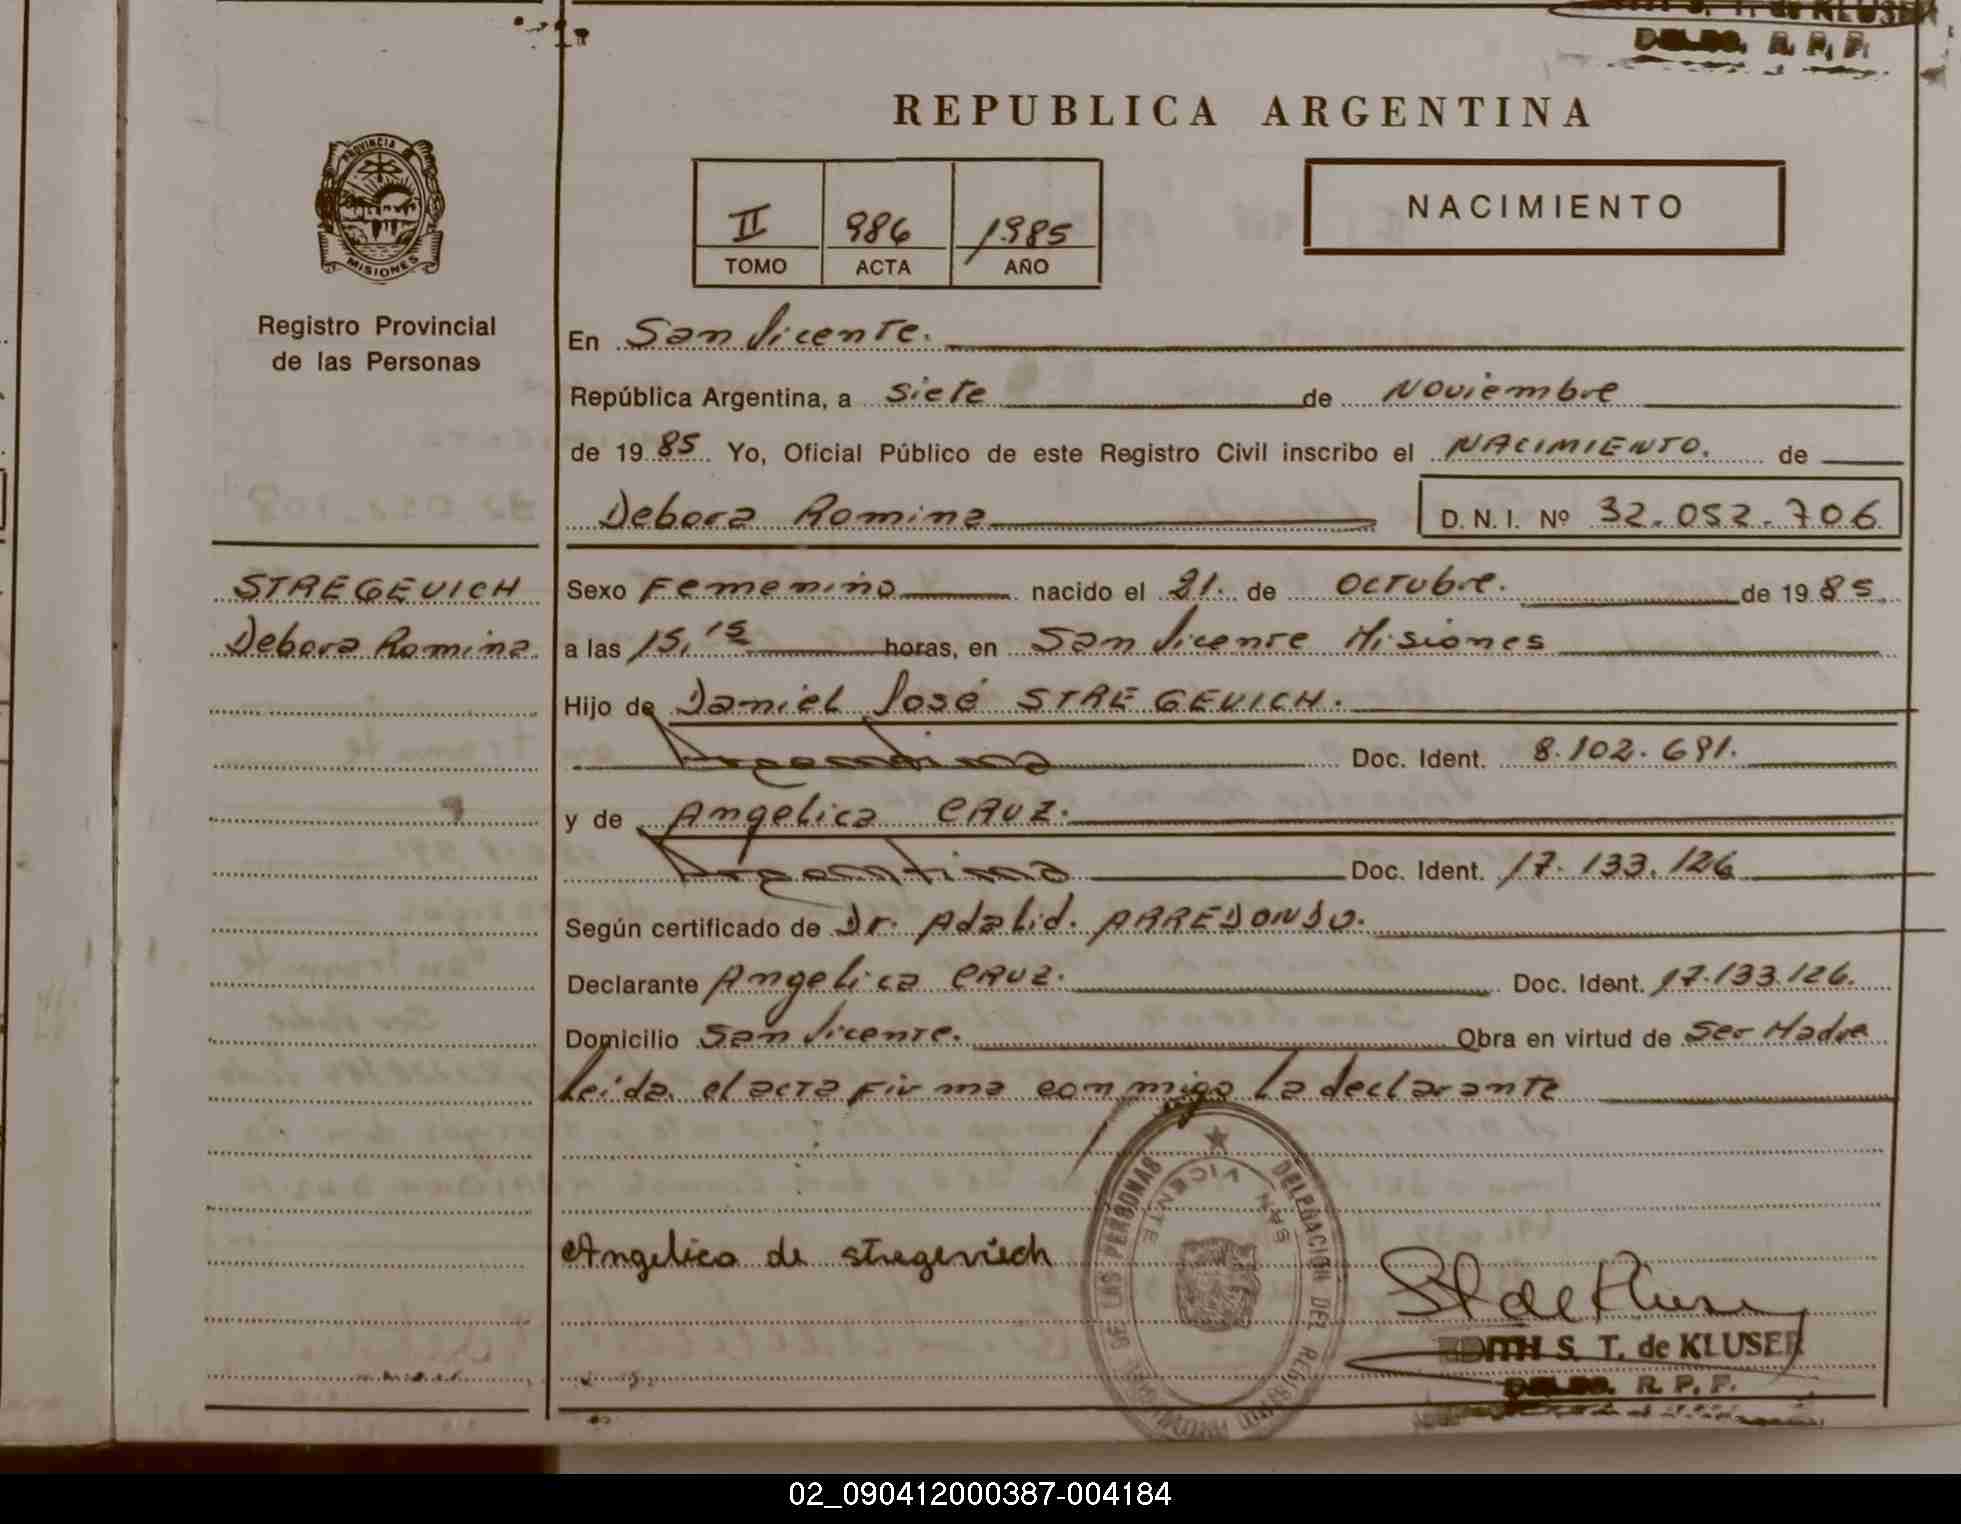 S. T. de KLUSER
DELEG. R. P. P.
REPUBLICA ARGENTINA
PROVINCIA
MISIONES
Registro Provincial
de las Personas
II 986 1985
TOMO ACTA AÑO
NACIMIENTO
En San Vicente.
República Argentina, a siete de Noviembre
de 19 85 Yo, Oficial Público de este Registro Civil inscribo el NACIMIENTO. de
Debora Romina D. N. I. Nº 32.052.706
STREGEVICH
Debora Romina
Sexo Femenino nacido el 21. de Octubre. de 19 85
a las 15,15 horas, en San Vicente Misiones
Hijo de Daniel José STREGEVICH.
Argentino Doc. Ident. 8.102.691.
y de Angelica CRUZ.
Argentina Doc. Ident. 17.133.126
Según certificado de Dr. Adalid. ARREDONDO.
Declarante Angelica CRUZ. Doc. Ident. 17.133.126.
Domicilio San Vicente. Obra en virtud de Ser Madre
Leida el acta firma conmigo la declarante
Angelica de stregeviech
DELEGACION DEL REGISTRO PROVINCIAL DE LAS PERSONAS
SAN VICENTE
EDITH S. T. de KLUSER
DELEG. R. P. P.
02_090412000387-004184